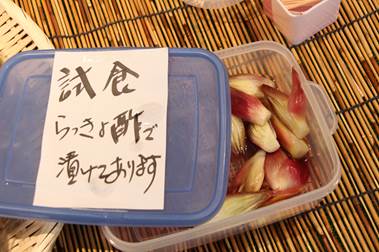 試食
らっきょ酢で
漬けてあります